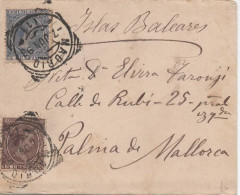 Islas Baleares
MADRID
Srta Dª Elvira Taronjí
Calle de Rubí-25-pral
Palma de
Mallorca